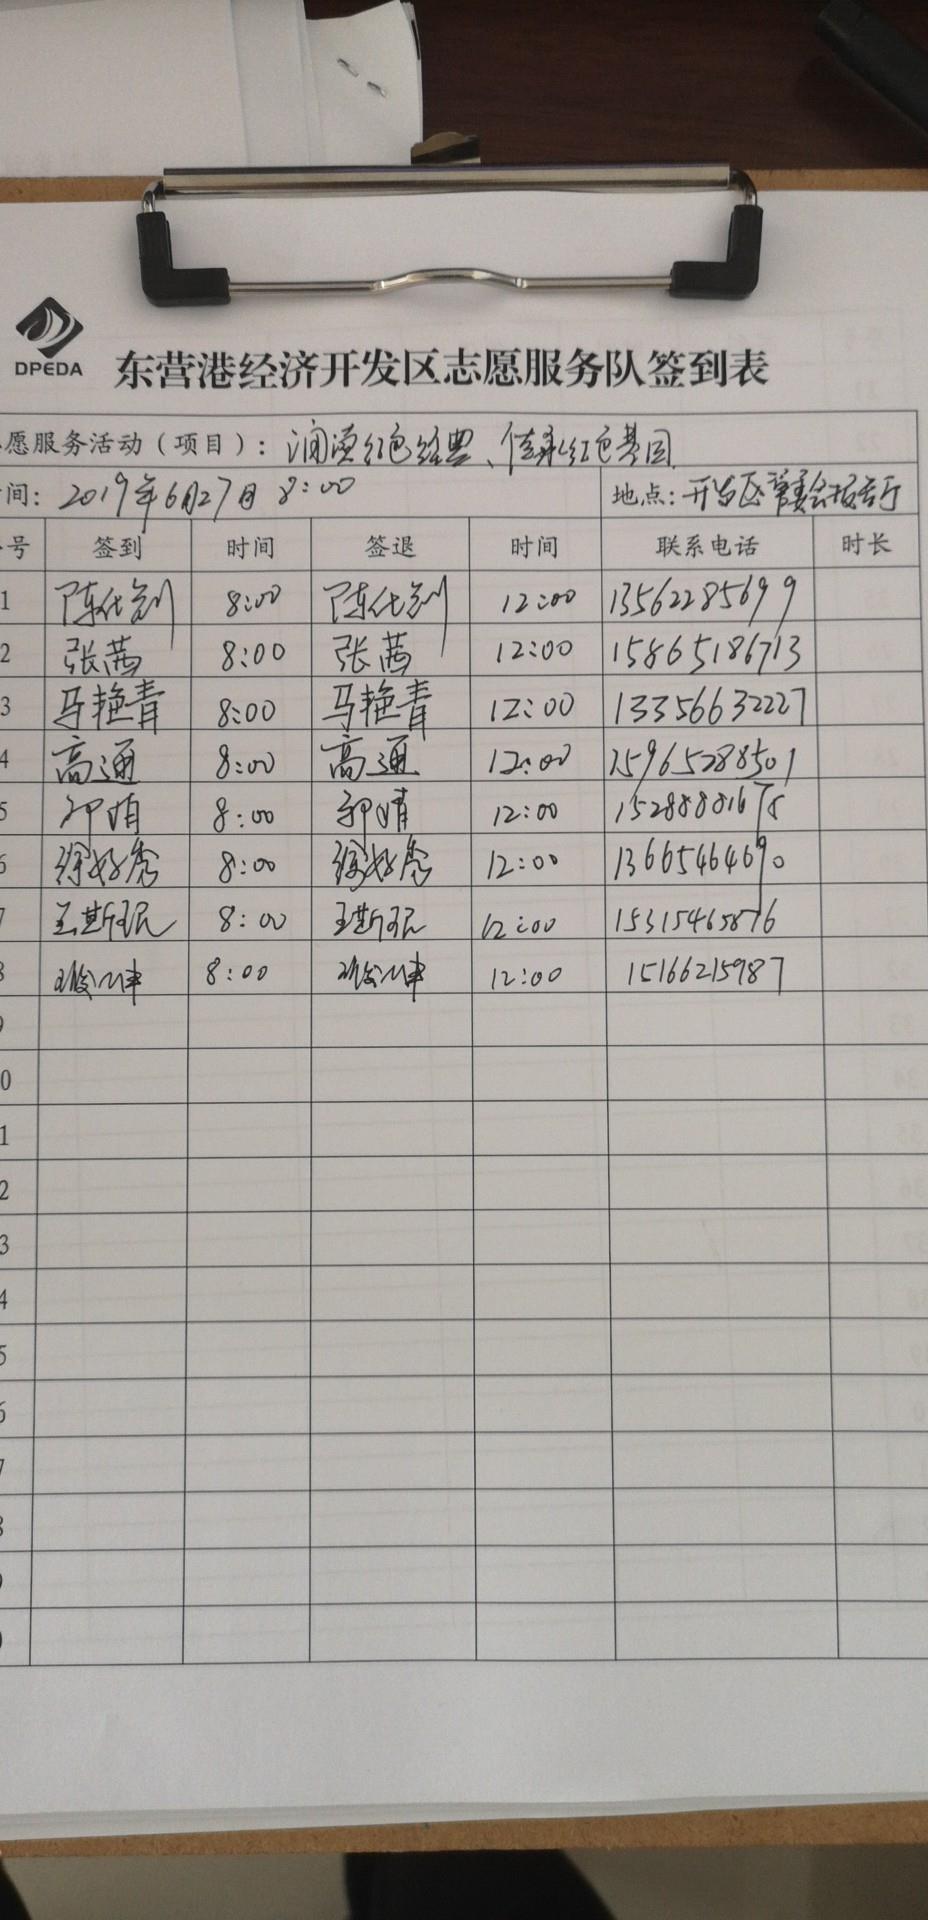 DPEDA
东营港经济开发区志愿服务队签到表
愿服务活动（项目）：诵读红色经典、传承红色基因
间：2019年6月27日 8:00 地点：开发区管委会报告厅
号 签到 时间 签退 时间 联系电话 时长
1 陈代剑 8:00 陈代剑 12:00 13562285699
2 张茜 8:00 张茜 12:00 15865186713
3 马艳青 8:00 马艳青 12:00 13356632227
4 高通 8:00 高通 12:00 15965288501
5 郭婧 8:00 郭婧 12:00 15288881678
6 徐好秀 8:00 徐好秀 12:00 13665464690
7 王斯珉 8:00 王斯珉 12:00 15315465876
8 8:00 12:00 15166215987
9
0
1
2
3
4
5
6
7
8
9
0